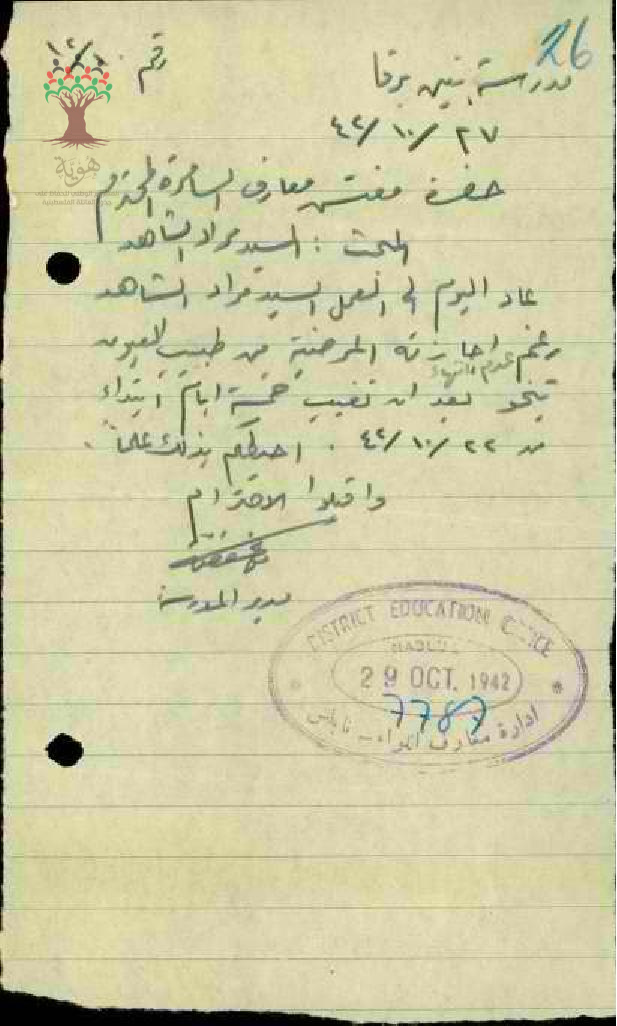 26
مدرسة بنين برقا
رقم ١٢/١٠
٢٧/١٠/٤٢
هوية
حضرة مفتش معارف السامرة المحترم
المبحث : السيد مراد الشاهد
عاد اليوم الى العمل السيد مراد الشاهد
رغم عدم انتهاء اجازته المرضية من طبيب العيون
بعد ان تغيب خمسة ايام ابتداء
من ٢٢/١٠/٤٢ . احيطكم بذلك علماً .
واقبلوا الاحترام
مدير المدرسة
DISTRICT EDUCATION OFFICE
NABLUS
29 OCT. 1942
7787
ادارة معارف لواء نابلس